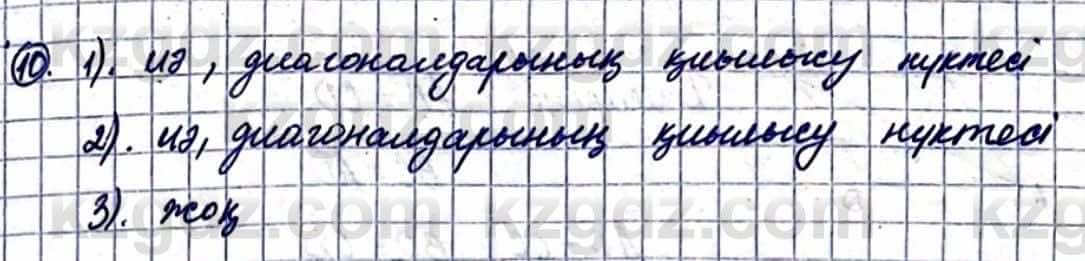 10. 1). иә, диагоналдарының қиылысу нүктесі
2). иә, диагоналдарының қиылысу нүктесі
3). жоқ
kzgdz.com kzgdz.com kzgdz.com